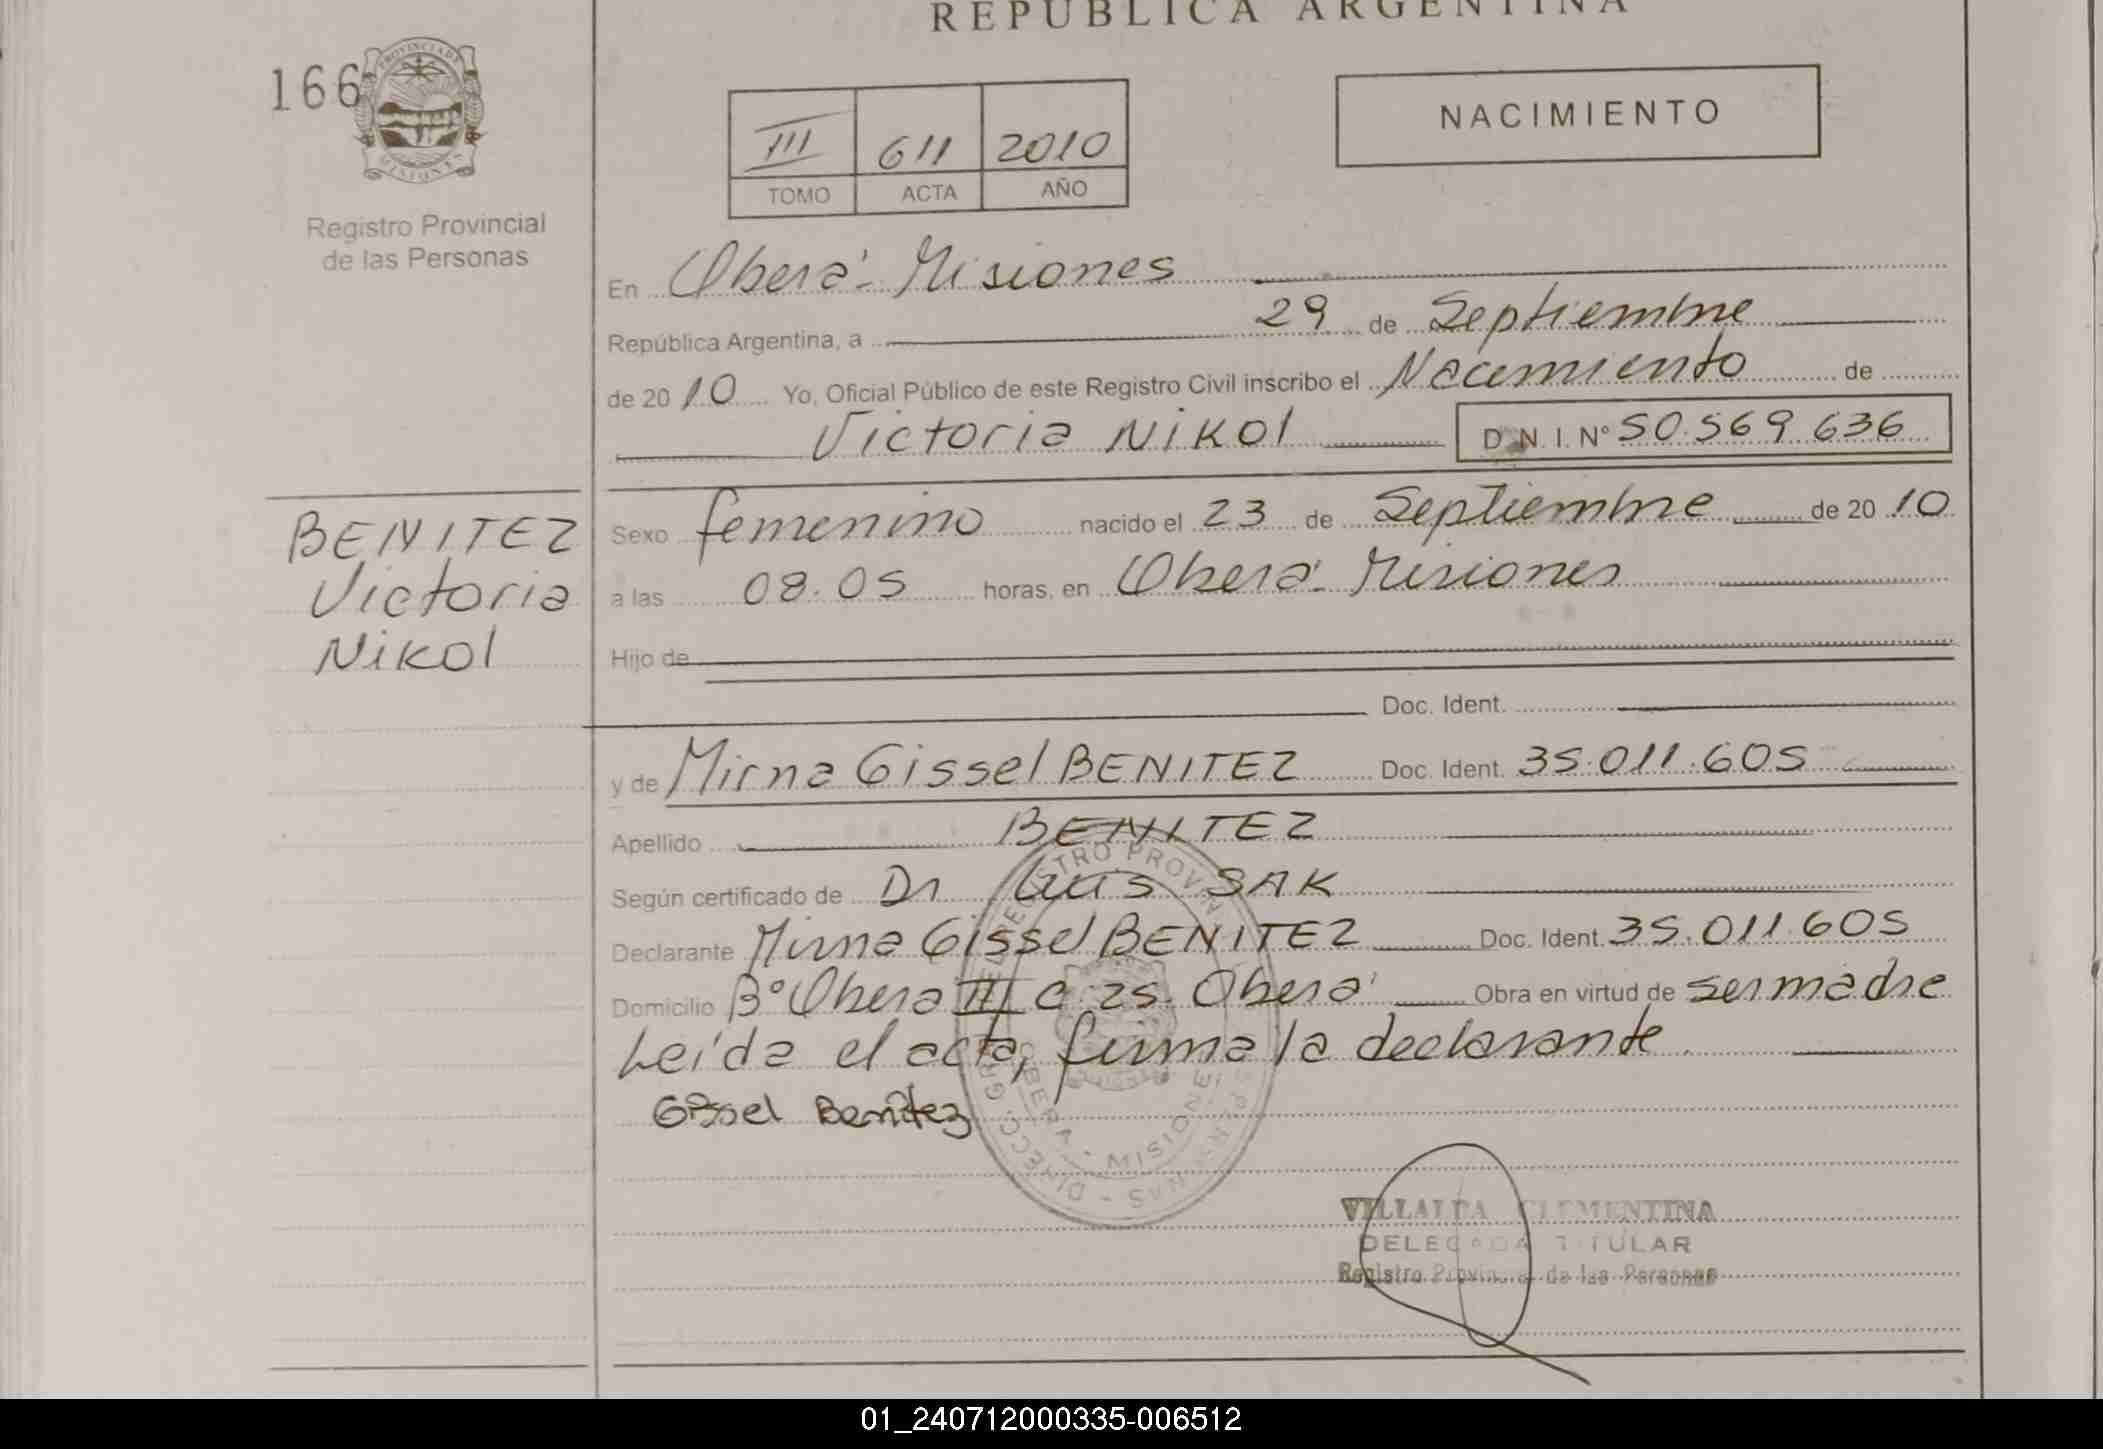 REPÚBLICA ARGENTINA
166
PROVINCIA DE
MISIONES
Registro Provincial
de las Personas
III 611 2010
TOMO ACTA AÑO
NACIMIENTO
En Oberá - Misiones
República Argentina, a 29 de Septiembre
de 2010 Yo, Oficial Público de este Registro Civil inscribo el Nacimiento de
Victoria Nikol D.N.I. Nº 50.569.636
BENITEZ
Victoria
Nikol
Sexo femenino nacido el 23 de Septiembre de 2010
a las 08.05 horas, en Oberá - Misiones
Hijo de
Doc. Ident.
y de Mirna Gissel BENITEZ Doc. Ident. 35.011.605
Apellido BENITEZ
Según certificado de Dr Luis SAK
Declarante Mirna Gissel BENITEZ Doc. Ident. 35.011.605
Domicilio Bº Obera III C 25. Oberá Obra en virtud de ser madre
Leída el acta, firma la declarante
Gissel Benitez
OBERA - MISIONES
VILLALBA CLEMENTINA
DELEGADA TITULAR
Registro Provincial de las Personas
01_240712000335-006512